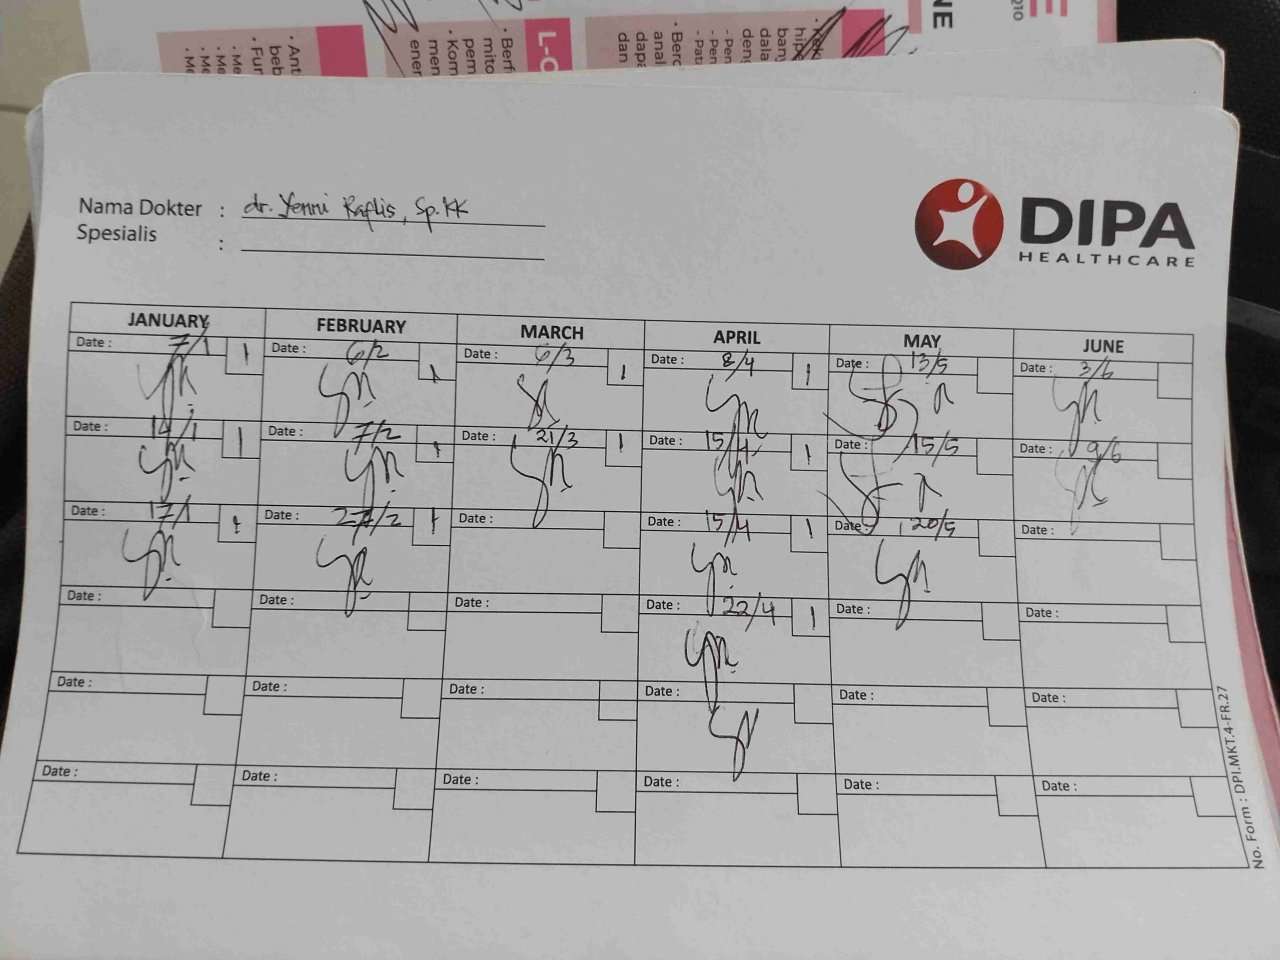 NE
Q10
L-C
Nama Dokter : dr. Yenni Raflis, Sp.KK
Spesialis :
DIPA
HEALTHCARE
JANUARY FEBRUARY MARCH APRIL MAY JUNE
Date : 7/1 1 Date : 6/2 1 Date : 6/3 1 Date : 8/4 1 Date : 13/5 Date : 3/6
Date : 14/1 1 Date : 7/2 1 Date : 21/3 1 Date : 15/4 1 Date : 15/5 Date : 9/6
Date : 17/1 1 Date : 27/2 1 Date : Date : 15/4 1 Date : 20/5 Date :
Date : Date : Date : Date : 22/4 1 Date : Date :
Date : Date : Date : Date : Date : Date :
Date : Date : Date : Date : Date : Date :
No. Form : DPI.MKT.4-FR.27